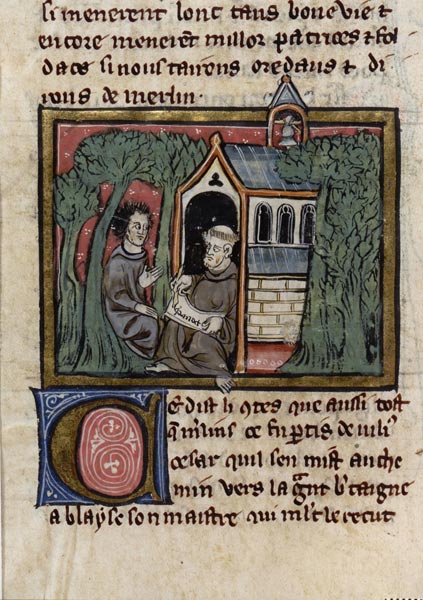 si menerent lonc tans bone vie &
encore menerēt millor patrices & fol
dace si nous tairons ore daus & di
rons de merlin·
Ce dist li ꝯtes que aussi tost
q̄ m̄lins ce fu ꝑtis de iuliꝰ
cesar quil sen mist au che
min vers la gᵃnt bͬtaigne
a blayse son maistre qui ml't le recut